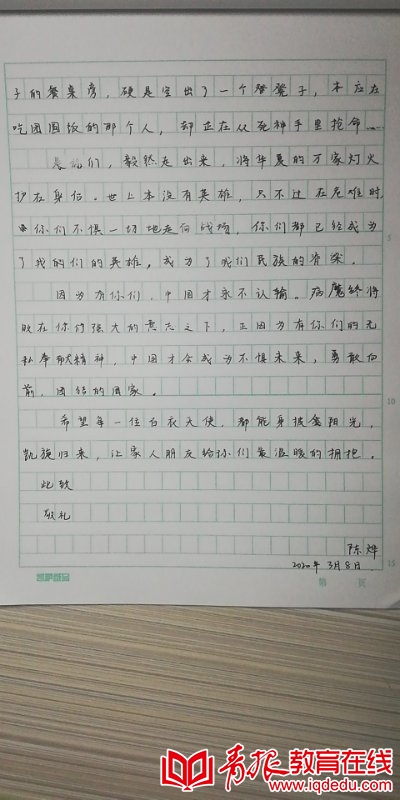 子的餐桌旁，硬是空出了一个餐凳子，本应在
吃团圆饭的那个人，却正在从死神手里抢命……
是你们，毅然走出来，将华夏的万家灯火
护在身后。世上本没有英雄，只不过在危难时
你们不惧一切地走向战场，你们都已经成为
了我的们的英雄，成为了我们民族的脊梁。
因为有你们，中国才永不认输。病魔终将
败在你们强大的意志之下，正因为有你们的无
私奉献精神，中国才会成为不惧未来，勇敢向
前，团结的国家。
希望每一位白衣天使，都能身披金阳光，
凯旋归来，让家人朋友给你们最温暖的拥抱。
此致
敬礼
陈烨
2020年3月8日
5
10
15
第 页
青报教育在线
www.iqdedu.com